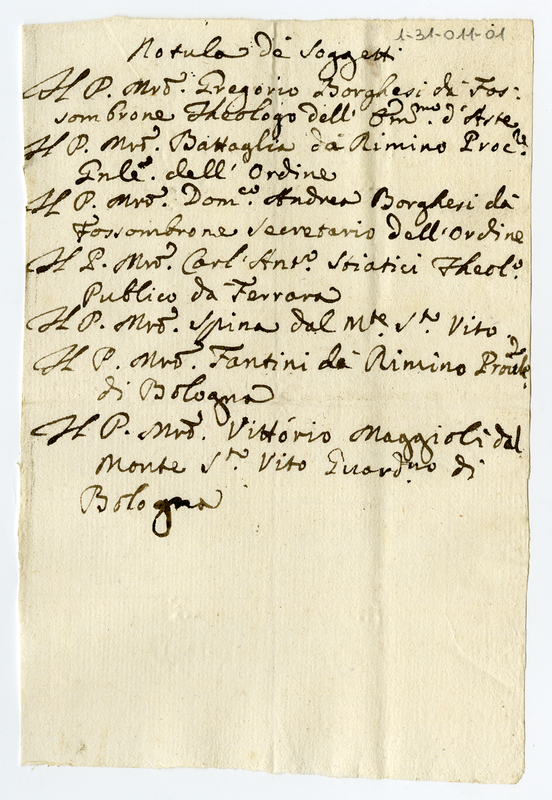 1-31-011-01
Notula dè Soggetti
Il P. Mrõ. Gregorio Borghesi dà Fos:
sombrone Theologo dell' Em.mo d'Aste
Il P. Mrõ. Battaglia dà Rimino Proc.re
Gnle. dell' Ordine
Il P. Mrõ. Dom.co Andrea Borghesi dà
Fossombrone Secretario dell'Ordine
Il P. Mrõ. Carl'Ant.o Stiatici Theol.o
Publico dà Ferrara
Il P. Mrõ. Spina dal Mte S.to Vito
Il P. Mrõ. Fantini dà Rimino Prõule
di Bologna
Il P. Mrõ. Vittório Maggioli dal
Monte S.to Vito Guard.no di
Bologna